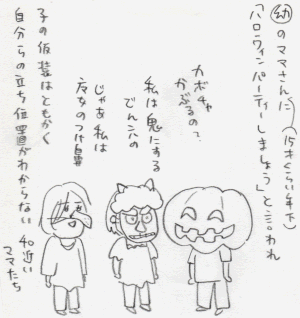 ㊙幼のママさんに(15才くらい年下)
「ハロウィンパーティーしましょう」と言われ
カボチャ
かぶるの?
私は鬼にする
でん六の
じゃあ私は
魔女のつけ鼻
子の仮装はともかく
自分らの立ち位置がわからない 40近い
ママたち